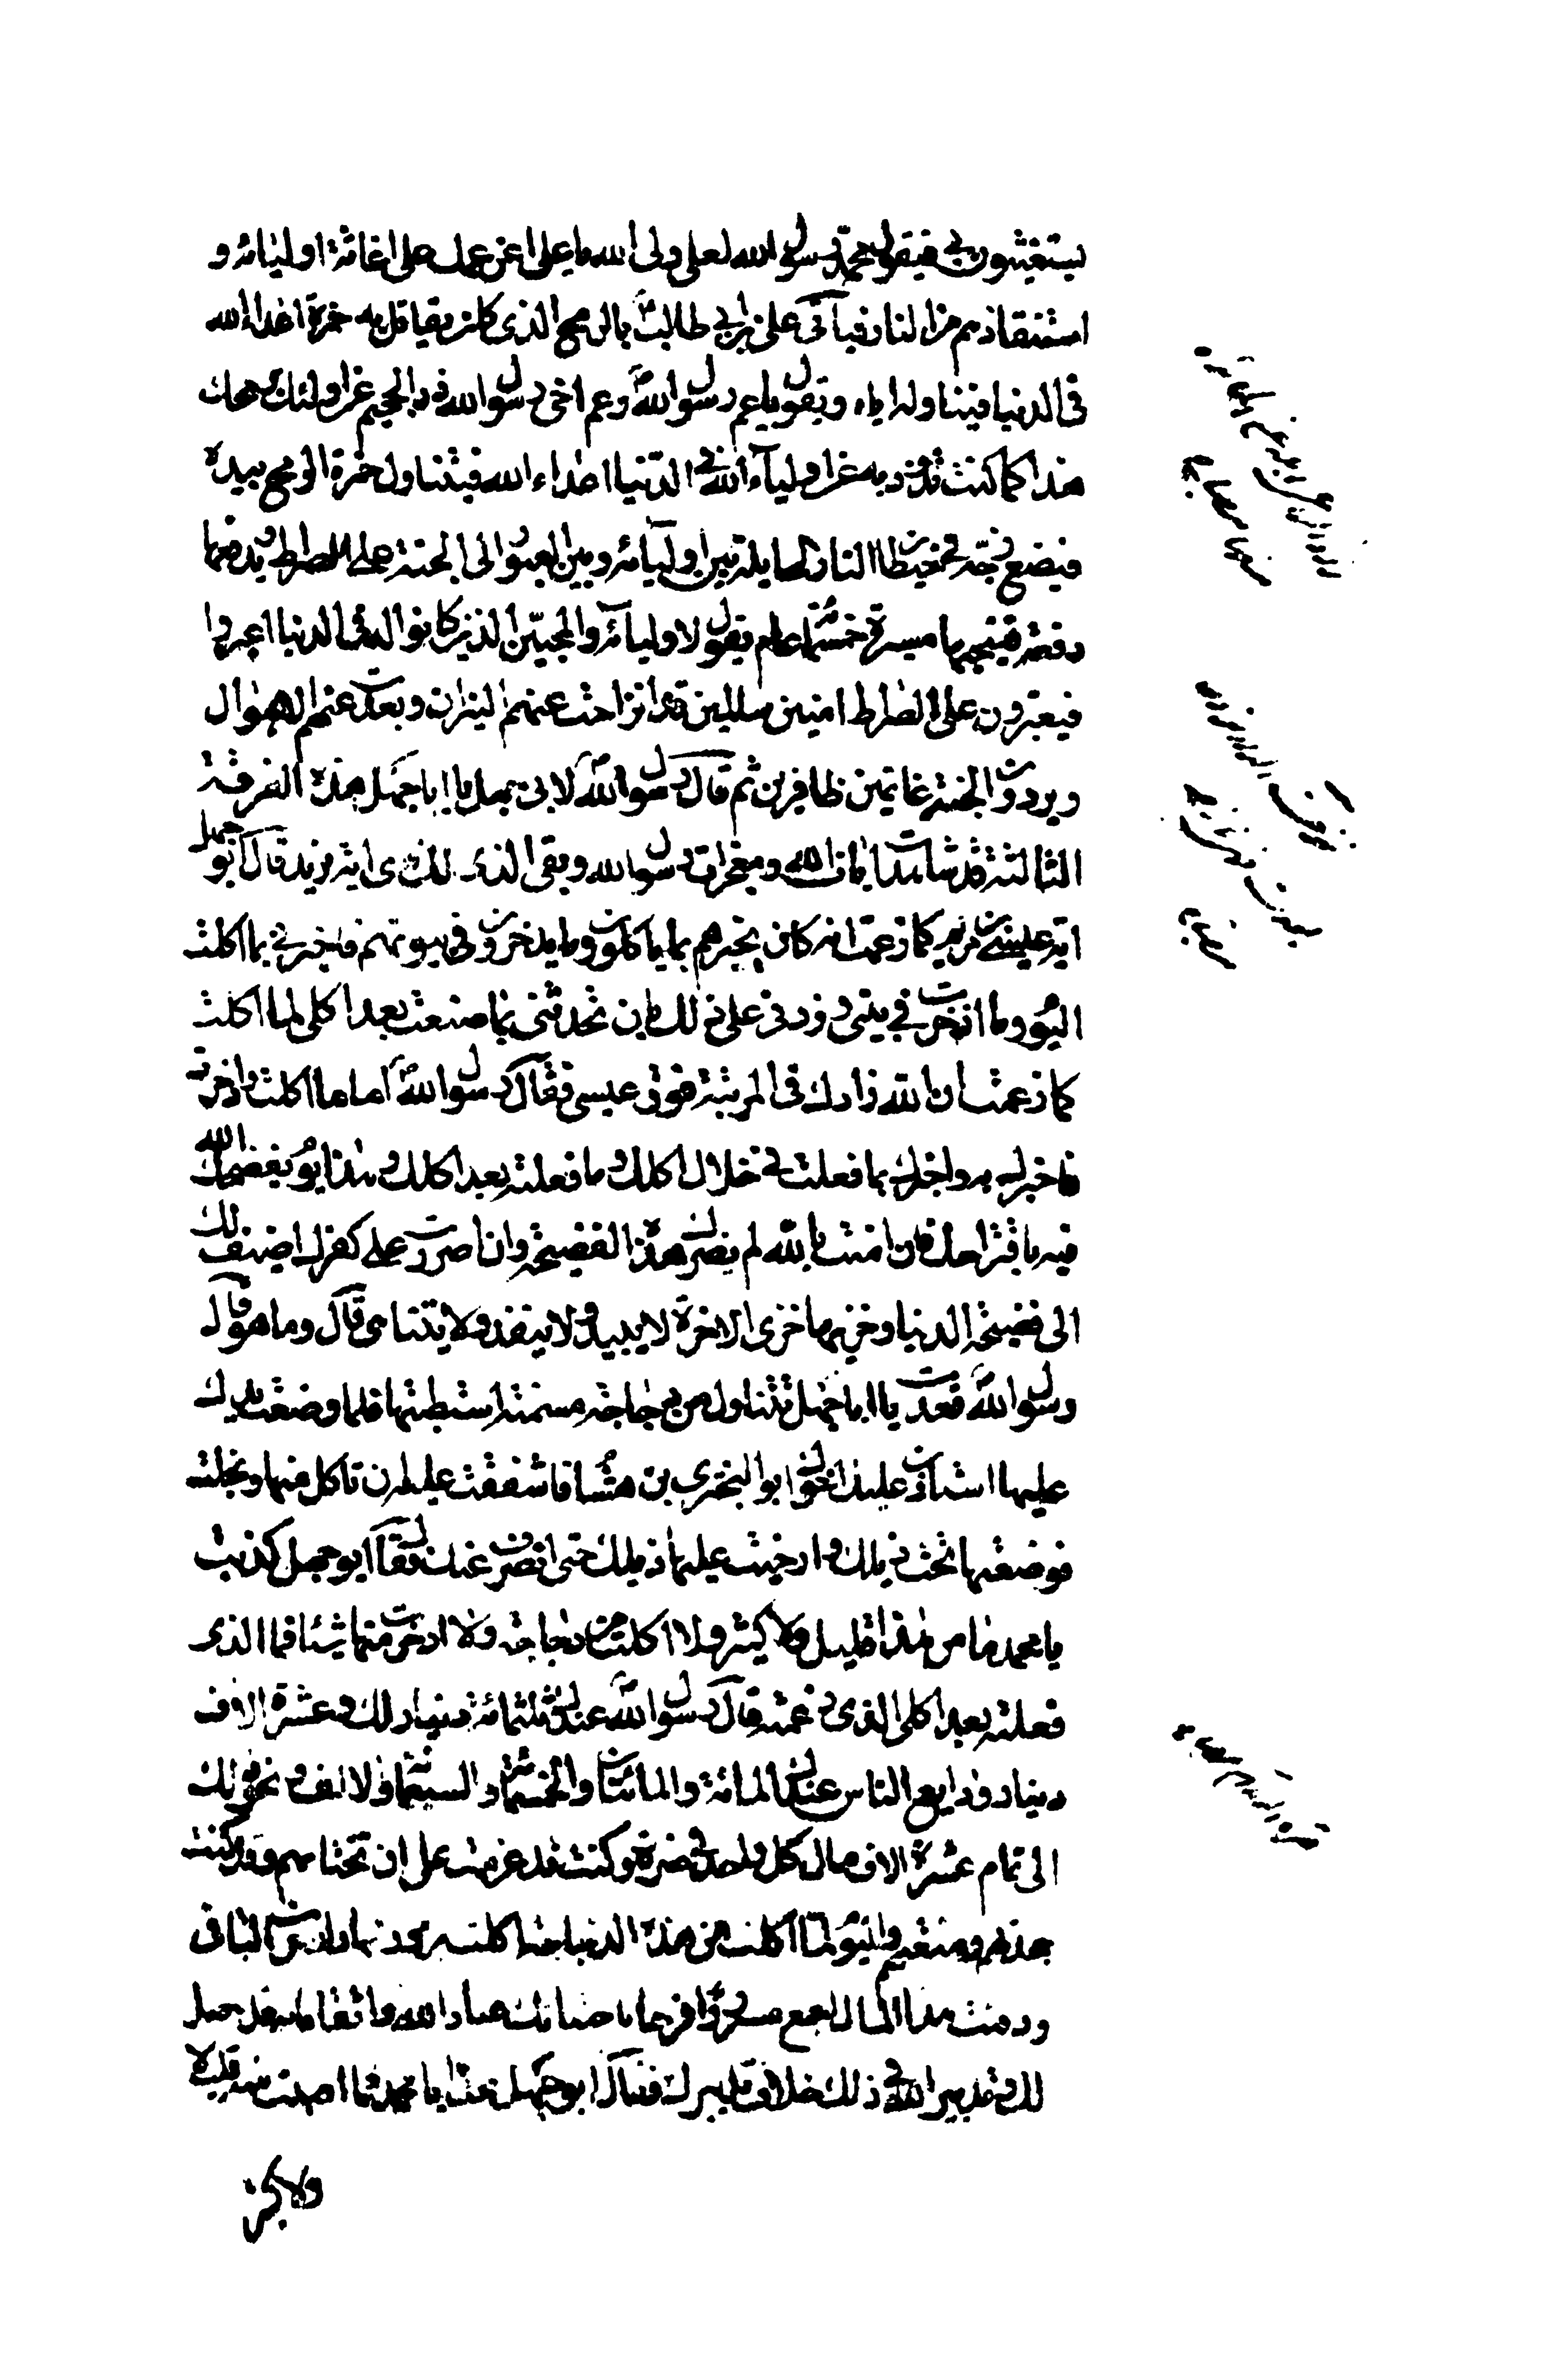 يستغيثون بي فيقول محمد رسول الله لعلي ولي الله يا علي اعن عمك على اغاثة اوليائه و
استنقاذهم من النار فيأتي علي بن ابي طالب بالرمح الذي كان يقاتل به حمزة اعداء الله
في الدنيا فيناوله اياه ويقول يا عم رسول الله وعم اخي رسول الله ذد الجحيم عن اوليائك برمحك
هذا كما كنت تذود به عن اولياء الله في الدنيا اعداء الله فيتناول حمزة الرمح بيده
فيضع زجه في حيطان النار الحايلة بين اوليائه وبين العبور الى الجنة على الصراط ويدفعها
دفعة فينحيها مسيرة خمسمائة عام ثم يقول لاوليائه والمحبين الذين كانوا له في الدنيا اعبروا
فيعبرون على الصراط امنين سالمين قد انزاحت عنهم النيران وبعدت عنهم الاهوال
ويردون الجنة غانمين ظافرين ثم قال رسول الله لابي جهل يا ابا جهل هذه الفرقة
الثالثة قد شاهدت ايات الله ومعجزات رسول الله وبقي الذي لك فاي اية تريد قال ابو جهل
اية عيسى بن مريم كما زعمت انه كان يخبرهم بما ياكلون وما يدخرون في بيوتهم فاخبرني بما اكلت
اليوم وما ادخرت في بيتي وزدني على ذلك بان تحدثني بما صنعت بعد اكلي لما اكلت
كما زعمت ان الله زادك في المرتبة فوق عيسى فقال رسول الله اما ما اكلت وادخرت
فاخبرك به واخبرك بما فعلت في خلال اكلك وما فعلته بعد اكلك وهذا يوم يفضحك الله
فيه باقتراحك فان امنت بالله لم يضرك هذه الفضيحة وان اصررت على كفرك اضيف لك
الى فضيحة الدنيا وخزيها خزي الاخرة لا يبيد ولا ينفد ولا يتناهى قال وما هو قال
رسول الله قعدت يا ابا جهل تتناول من دجاجة مسمنة استطبتها فلما وضعت يدك
عليها استاذن عليك اخوك ابو البختري بن هشام فاشفقت عليه ان تاكل منها وبخلت
فوضعتها تحت ذيلك وارخيت عليها ذيلك حتى انصرف عنك فقال ابو جهل كذبت
يا محمد ما من هذا قليل ولا كثير ولا اكلت من دجاجة ولا ادخرت منها شيئا فما الذي
فعلته بعد اكلي الذي زعمته قال رسول الله عندك ثلثمائة دينار لك وعشرة الاف
دينار ودايع الناس عندك المائة والمائتان والخمسمائة والسبعمائة والالف ونحو ذلك
الى تمام عشرة الاف مال كل واحد في صرة وكنت قد عزمت على ان تختانهم وقد كنت
جحدتهم ومنعتهم واليوم لما اكلت من هذه الدجاجة اكلت زورها وادخرت الباقي
ودفنت هذا المال اجمع مسرورا فرحا باختيانك عباد الله واثقا بانه قد حصل
لك وتدبير الله في ذلك خلاف تدبيرك فقال ابو جهل وهذا ايضا يا محمد فما اصبت منه قليلا
ولا كثيرا